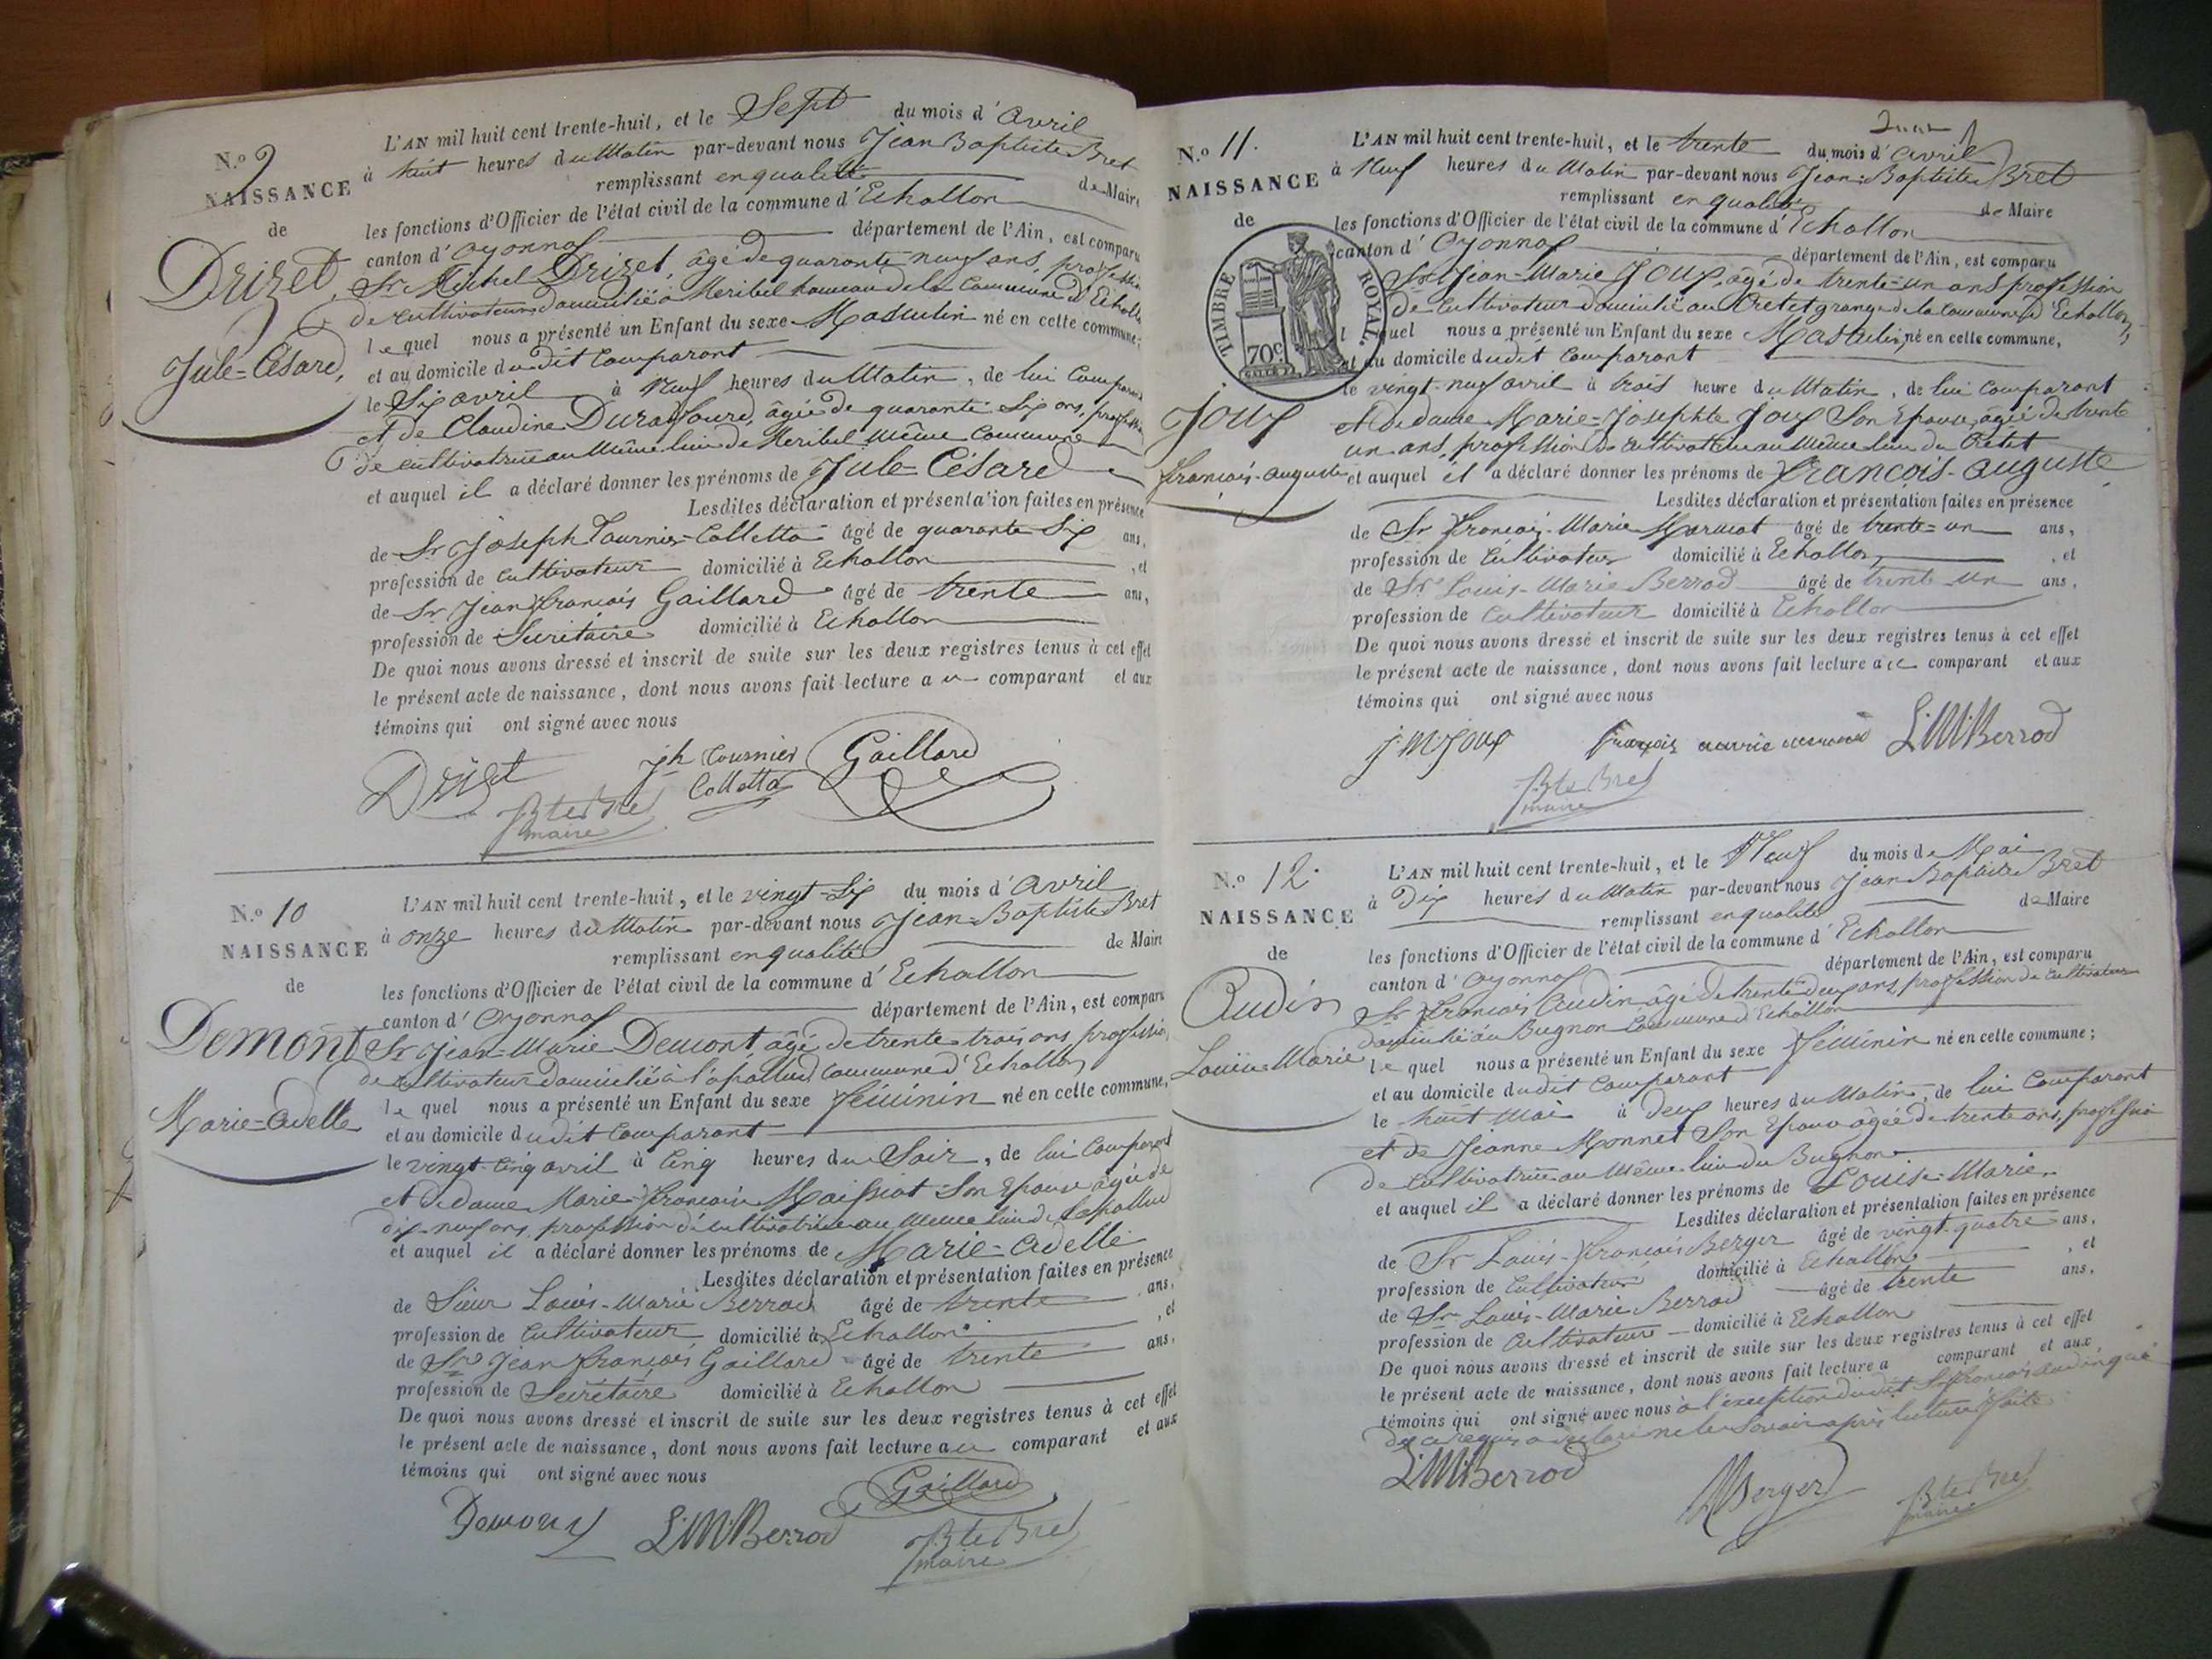 N.o 9
NAISSANCE
de
Drizet,
Jule=Césard,
L'AN mil huit cent trente-huit, et le Sept du mois d'Avril
à huit heures du Matin par-devant nous Jean Baptiste Bret
remplissant en qualité de Maire
les fonctions d'Officier de l'état civil de la commune d'Echallon
canton d'Oyonnax département de l'Ain, est comparu
Sr Michel Drizet, âgé de quarante neuf ans, profession
de cultivateur domicilié à Meribel hameau de la Commune d'Echallon
lequel nous a présenté un Enfant du sexe Masculin né en cette commune;
et au domicile dudit Comparant
le Six avril à Neuf heures du Matin, de lui Comparant
et de Claudine Durafourd, âgée de quarante Six ans, profession
de cultivatrice au même lieu de Meribel même Commune
et auquel il a déclaré donner les prénoms de Jule=Césard
Lesdites déclaration et présentation faites en présence
de Sr Joseph Tournier-Colletta âgé de quarante Six ans,
profession de Cultivateur domicilié à Echallon , et
de Sr Jean François Gaillard âgé de trente ans,
profession de Secrétaire domicilié à Echallon
De quoi nous avons dressé et inscrit de suite sur les deux registres tenus à cet effet
le présent acte de naissance, dont nous avons fait lecture au comparant et aux
témoins qui ont signé avec nous
Drizet jh tournier Colletta Gaillard
Bte Bret
maire
N.o 10
NAISSANCE
de
Demont
Marie=Adelle
L'AN mil huit cent trente-huit, et le vingt-Six du mois d'Avril
à onze heures du Matin par-devant nous Jean=Baptiste Bret
remplissant en qualité de Maire
les fonctions d'Officier de l'état civil de la commune d'Echallon
canton d'Oyonnax département de l'Ain, est comparu
Sr Jean-Marie Demont âgé de trente trois ans, profession
de cultivateur domicilié à lapallud commune d'Echallon
lequel nous a présenté un Enfant du sexe féminin né en cette commune,
et au domicile dudit Comparant
le vingt-cinq avril à Cinq heures du Soir, de lui Comparant
et de dame Marie-françoise Maissiat Son Epouse âgée de
dix-neuf ans, profession de cultivatrice au même lieu de Lapallud
et auquel il a déclaré donner les prénoms de Marie-Adelle
Lesdites déclaration et présentation faites en présence
de Sieur Louis-Marie Berrod âgé de trente ans,
profession de Cultivateur domicilié à Echallon , et
de Sr Jean François Gaillard âgé de trente ans,
profession de Secrétaire domicilié à Echallon
De quoi nous avons dressé et inscrit de suite sur les deux registres tenus à cet effet
le présent acte de naissance, dont nous avons fait lecture au comparant et aux
témoins qui ont signé avec nous
Gaillard
Demont L.M.Berrod Bte Bret
maire
N.o 11.
NAISSANCE
de
TIMBRE ROYAL.
70c
Joux
françois-auguste
L'AN mil huit cent trente-huit, et le trente du mois d'avril
à Neuf heures du Matin par-devant nous Jean-Baptiste Bret
remplissant en qualité de Maire
les fonctions d'Officier de l'état civil de la commune d'Echallon
canton d'Oyonnax département de l'Ain, est comparu
Sr Jean-Marie Joux, âgé de trente-un ans profession
de Cultivateur domicilié au Cretet grange de la commune d'Echallon,
lequel nous a présenté un Enfant du sexe Masculin, né en cette commune,
et au domicile dudit Comparant
le vingt-neuf avril à trois heure du Matin, de lui Comparant
et de dame Marie=Josephte Joux Son Epouse, agée de trente
un ans, profession de cultivatrice au même lieu du Cretet
et auquel il a déclaré donner les prénoms de François-auguste
Lesdites déclaration et présentation faites en présence
de Sr François-Marie Mermet âgé de trente=un ans,
profession de Cultivateur domicilié à Echallon , et
de Sr Louis-Marie Berrod âgé de trente-un ans,
profession de Cultivateur domicilié à Echallon
De quoi nous avons dressé et inscrit de suite sur les deux registres tenus à cet effet
le présent acte de naissance, dont nous avons fait lecture au comparant et aux
témoins qui ont signé avec nous
j.m.joux françois marie L.M.Berrod
Bte Bret
maire
N.o 12.
NAISSANCE
de
Audin
Louise-Marie
L'AN mil huit cent trente-huit, et le Neuf du mois de Mai
à Dix heures du Matin par-devant nous Jean-Baptiste Bret
remplissant en qualité de Maire
les fonctions d'Officier de l'état civil de la commune d'Echallon
canton d'Oyonnax département de l'Ain, est comparu
Sr François Audin âgé de trente deux ans, profession de cultivateur
domicilié au Bugnon Commune d'Echallon
lequel nous a présenté un Enfant du sexe féminin né en cette commune;
et au domicile dudit Comparant
le huit Mai à deux heures du Matin, de lui Comparant
et de Jeanne Monnet Son Epouse âgée de trente ans, profession
de cultivatrice au même lieu du Bugnon
et auquel il a déclaré donner les prénoms de Louise-Marie.
Lesdites déclaration et présentation faites en présence
de Sr Louis-François Berger âgé de vingt-quatre ans,
profession de Cultivateur domicilié à Echallon , et
de Sr Louis-Marie Berrod âgé de trente ans,
profession de Cultivateur domicilié à Echallon
De quoi nous avons dressé et inscrit de suite sur les deux registres tenus à cet effet
le présent acte de naissance, dont nous avons fait lecture a comparant et aux
témoins qui ont signé avec nous à l'exception dudit Sr François Audin qui
de ce requis a déclaré ne le savoir après lecture faite
L.M.Berrod Berger Bte Bret
maire